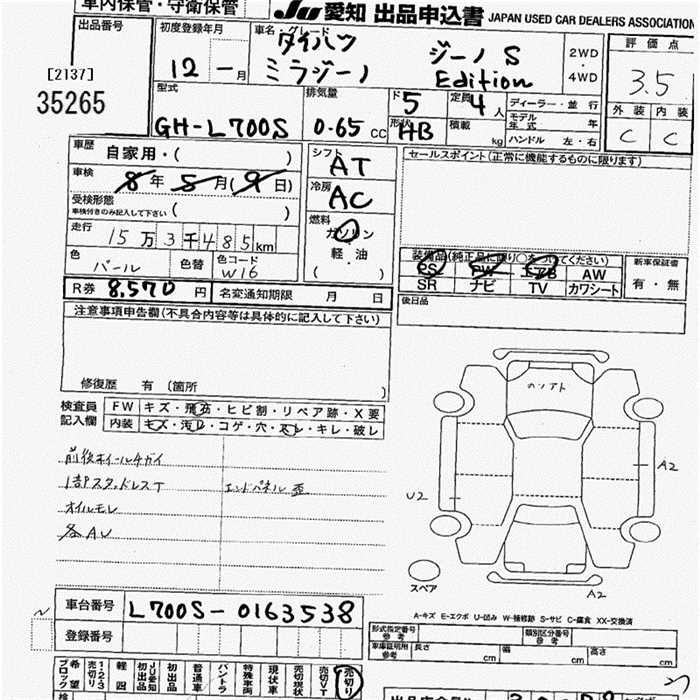 車内保管・守衛保管
JU 愛知 出品申込書 JAPAN USED CAR DEALERS ASSOCIATION
出品番号
[2137]
35265
初度登録年月
12 ー 月
車名・グレード
ダイハツ ジーノ S
ミラジーノ Edition
2WD
・
4WD
評価点
3.5
外装 内装
C C
型式
GH-L700S
排気量
0.65 cc
ド 5
形状 HB
定員 4 人
積載 kg
ディーラー・並行
モデル年式 年
ハンドル 左・右
車歴 自家用・( )
車検 8年 5月(9日)
受検形態
車検付きのみ記入して下さい ( )
走行 15万3千485km
色 パール 色替 色コード W16
シフト AT
冷房 AC
燃料
ガソリン
軽・油
( )
セールスポイント(正常に機能するものに限ります)
装備品(純正品に限り○をつけてください)
PS PW エアB AW
SR ナビ TV カワシート
新車保証書
有・無
後日品
R券 8,570 円 名変通知期限 月 日
注意事項申告欄(不具合内容等は具体的に記入して下さい)
修復歴 有 (箇所 )
検査員記入欄
FW キズ・飛石・ヒビ割・リペア跡・X要
内装 キズ・汚レ・コゲ・穴・スレ・キレ・破レ
前後ホイールチガイ
1部スタッドレスT エンドパネル歪
オイルモレ
各AU
A2
U2
スペア
A2
A-キズ E-エクボ U-凹み W-補修跡 S-サビ C-腐食 XX-交換済
車台番号 L700S-0163538
登録番号
形式指定番号 参考 類別区分番号 参考
車庫証明用 参考 長さ cm 幅 cm 高さ cm
希望ブロック
1・2・3売切り
軽四
JU愛知初出品
初出品
普通車
バントラ
特殊車両
現状車
売切現状
売切VT
売切り